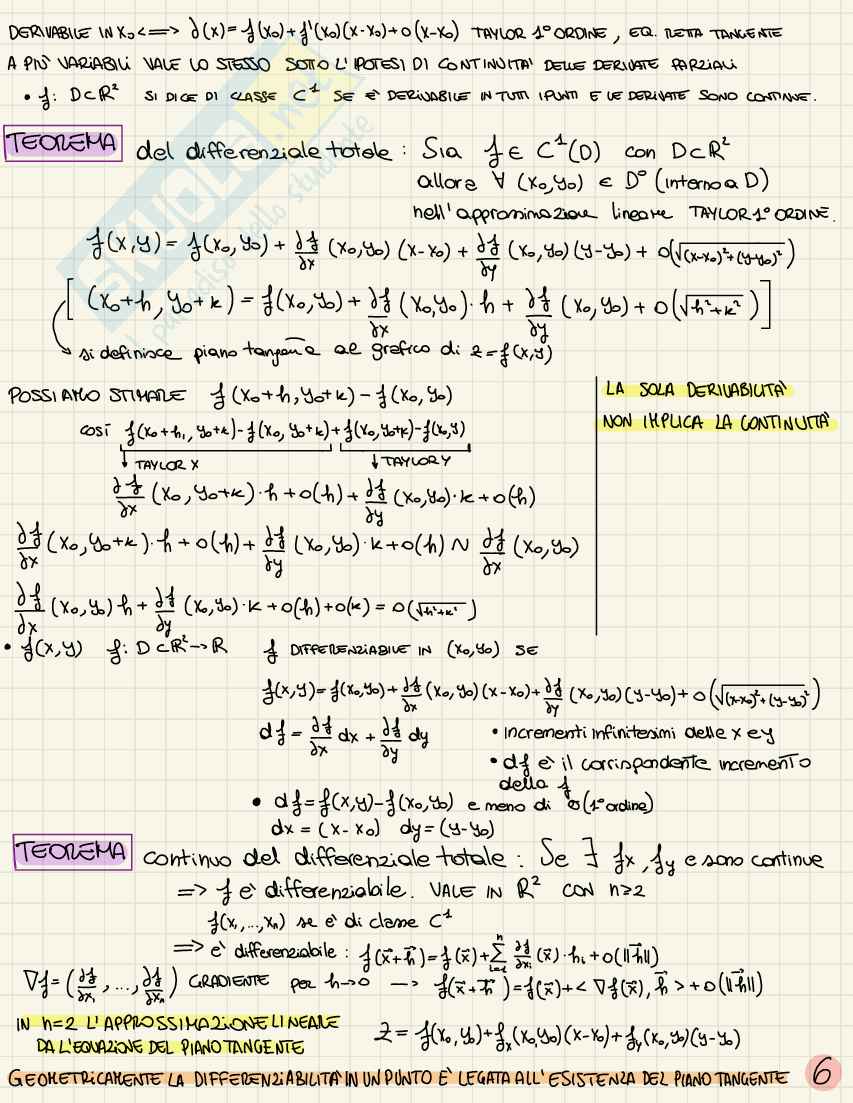 DERIVABILE IN X₀ <=> f(x) = f(x₀) + f'(x₀)(x-x₀) + o(x-x₀) TAYLOR 1° ORDINE, EQ. RETTA TANGENTE
A PIÙ VARIABILI VALE LO STESSO SOTTO L'IPOTESI DI CONTINUITÀ DELLE DERIVATE PARZIALI
• f: D⊂ℝ² SI DICE DI CLASSE C¹ SE È DERIVABILE IN TUTTI I PUNTI E LE DERIVATE SONO CONTINUE.
TEOREMA del differenziale totale: Sia f ∈ C¹(D) con D⊂ℝ²
allora ∀ (x₀,y₀) ∈ D° (interno a D)
nell'approssimazione lineare TAYLOR 1° ORDINE.
f(x,y) = f(x₀,y₀) + ∂f/∂x (x₀,y₀)(x-x₀) + ∂f/∂y (x₀,y₀)(y-y₀) + o(√((x-x₀)²+(y-y₀)²))
[(x₀+h, y₀+k) = f(x₀,y₀) + ∂f/∂x (x₀,y₀)·h + ∂f/∂y (x₀,y₀) + o(√(h²+k²))]
si definisce piano tangente al grafico di z=f(x,y)
POSSIAMO STIMARE f(x₀+h, y₀+k) - f(x₀,y₀)
così f(x₀+h, y₀+k) - f(x₀,y₀+k) + f(x₀,y₀+k) - f(x₀,y)
↓ TAYLOR X ↓ TAYLOR Y
∂f/∂x (x₀,y₀+k)·h + o(h) + ∂f/∂y (x₀,y₀)·k + o(h)
∂f/∂x (x₀,y₀+k)·h + o(h) + ∂f/∂y (x₀,y₀)·k + o(h) ~ ∂f/∂x (x₀,y₀)
∂f/∂x (x₀,y₀)h + ∂f/∂y (x₀,y₀)·k + o(h) + o(k) = o(√(h²+k²))
LA SOLA DERIVABILITÀ
NON IMPLICA LA CONTINUITÀ
• f(x,y) f: D⊂ℝ² → ℝ f DIFFERENZIABILE IN (x₀,y₀) SE
f(x,y) = f(x₀,y₀) + ∂f/∂x (x₀,y₀)(x-x₀) + ∂f/∂y (x₀,y₀)(y-y₀) + o(√((x-x₀)²+(y-y₀)²))
df = ∂f/∂x dx + ∂f/∂y dy
• incrementi infinitesimi delle x e y
• df è il corrispondente incremento
della f
• df = f(x,y) - f(x₀,y₀) e meno di o(1° ordine)
dx = (x-x₀) dy = (y-y₀)
TEOREMA continuo del differenziale totale: Se ∃ fx, fy e sono continue
=> f è differenziabile. VALE IN ℝ² CON n≥2
f(x₁,...,xₙ) se è di classe C¹
=> è differenziabile: f(x⃗+h⃗) = f(x⃗) + Σⁿᵢ₌₁ ∂f/∂xᵢ (x⃗)·hᵢ + o(||h⃗||)
∇f = (∂f/∂x₁, ..., ∂f/∂xₙ) GRADIENTE per h→0 —> f(x⃗+h⃗) = f(x⃗) + < ∇f(x⃗), h⃗ > + o(||h⃗||)
IN n=2 L'APPROSSIMAZIONE LINEARE
DA L'EQUAZIONE DEL PIANO TANGENTE
z = f(x₀,y₀) + fx(x₀,y₀)(x-x₀) + fy(x₀,y₀)(y-y₀)
GEOMETRICAMENTE LA DIFFERENZIABILITÀ IN UN PUNTO È LEGATA ALL'ESISTENZA DEL PIANO TANGENTE 6
SKUOLA.net
il paradiso dello studente